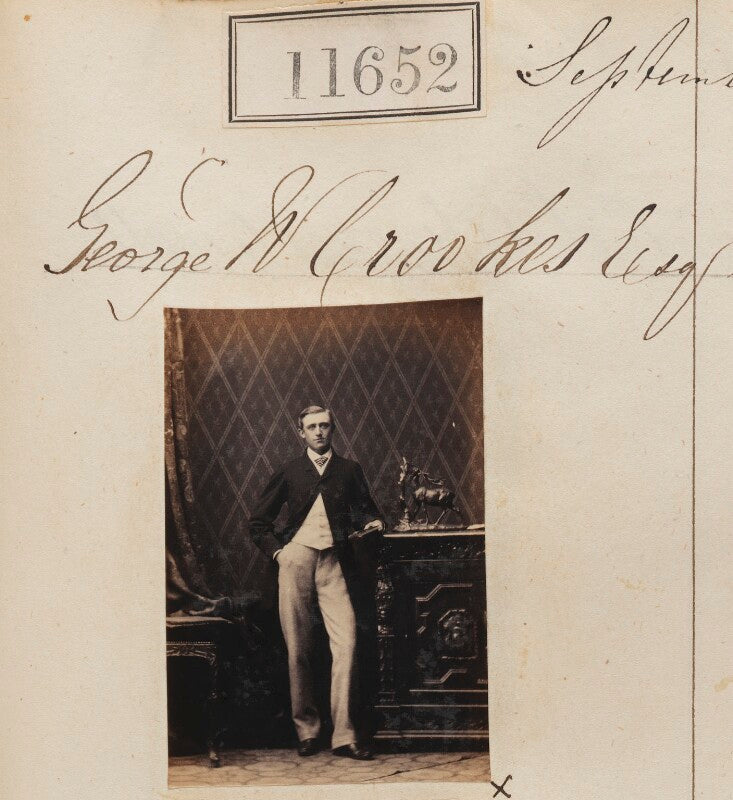 11652
Septem
George W Crookes Esq
x